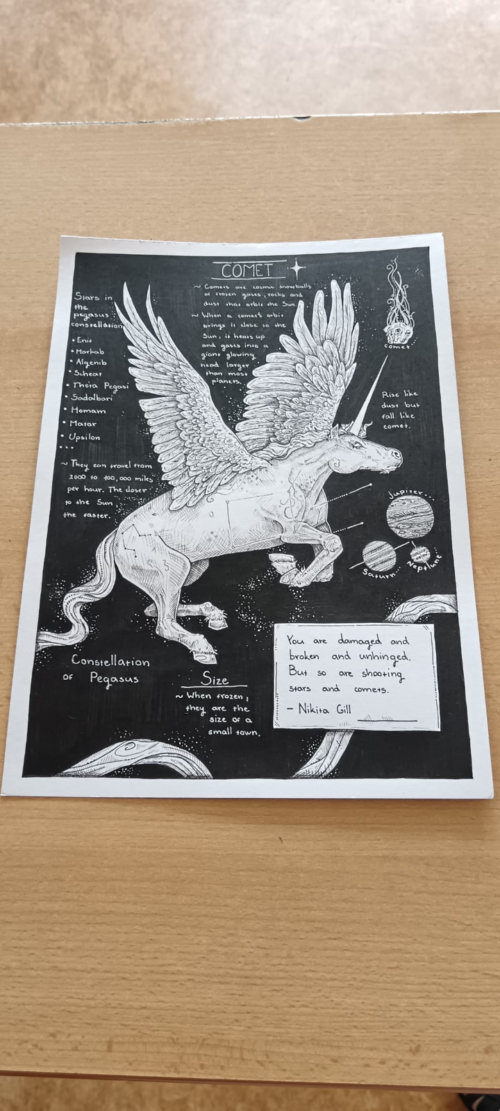 COMET
~ Comets are cosmic snowballs
of frozen gases, rocks and
dust that orbit the Sun.
~ When a comet's orbit
brings it close to the
Sun, it heats up
and gases into a
giant glowing
head larger
than most
planets.
Stars in
the
pegasus
constellation:
• Enis
• Markab
• Algenib
• Scheat
• Theia Pegasi
• Sadalbari
• Homam
• Matar
• Upsilon
...
~ They can travel from
2000 to 100,000 miles
per hour. The closer
to the Sun
the faster.
comet
Rise like
dust but
fall like
comet.
Jupiter
Saturn
Neptune
Constellation
of Pegasus
Size
~ When frozen,
they are the
size of a
small town.
You are damaged and
broken and unhinged.
But so are shooting
stars and comets.
- Nikita Gill